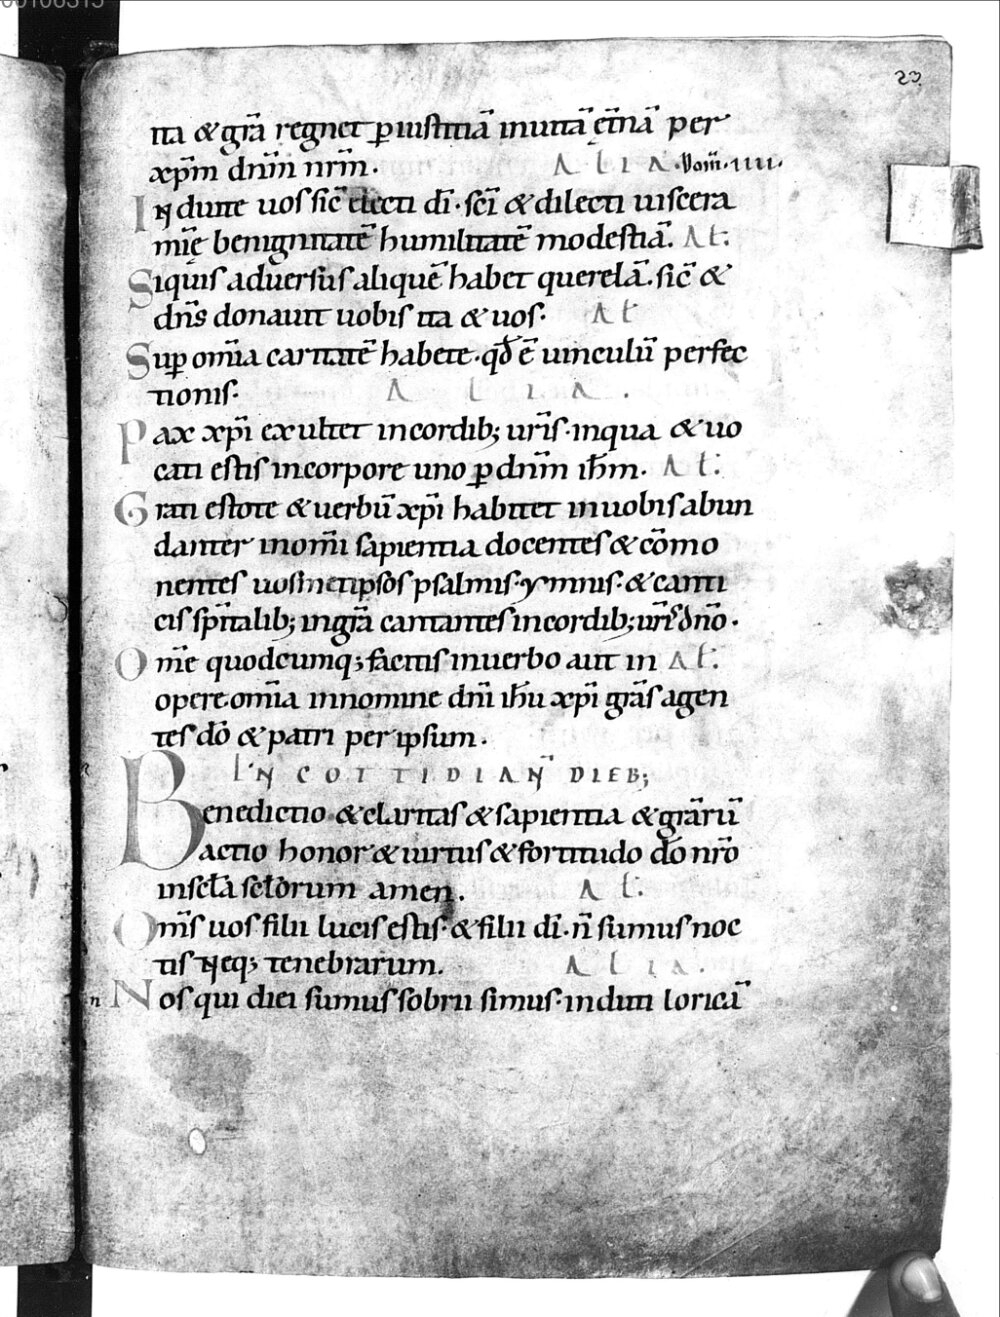 23
ita & gr̄a regnet p iustitiā in uitā et̄nā per
xp̄m dn̄m nr̄m. A L I A. Dom̄. IIII.
INduite uos sic̄ electi dī. sc̄i & dilecti uiscera
mīę benignitatē humilitatē modestiā. A L̄:
Siquis aduersus aliquē habet querelā. sic̄ &
dn̄s donauit uobis ita & uos. A L̄
Sup om̄ia caritatē habete. qđ ē uinculū perfec
tionis. A L I A .
Pax xp̄i exultet in cordib; ur̄is. in qua & uo
cati estis in corpore uno p dn̄m ih̄m. A L̄:
Grati estote & uerbū xp̄i habitet in uobis abun
danter in om̄i sapientia docentes & cōmo
nentes uosmetipsos psalmis. ymnis. & canti
cis sp̄italib; in gr̄a cantantes in cordib; ur̄is dn̄o.
Om̄e quodcumq; facitis in uerbo aut in A L̄:
opere. om̄ia in nomine dn̄i ih̄u xp̄i gr̄as agen
tes dō & patri per ipsum.
IN COTTIDIANˉ DIEB;
Benedictio & claritas & sapientia & gr̄arū
actio honor & uirtus & fortitudo dō nr̄o
in sc̄la sc̄lorum amen. A L̄:
Om̄s uos filii lucis estis. & filii dī. n̄ sumus noc
tis Neq; tenebrarum. A L I A .
n Nos qui diei sumus sobrii simus. induti loricā